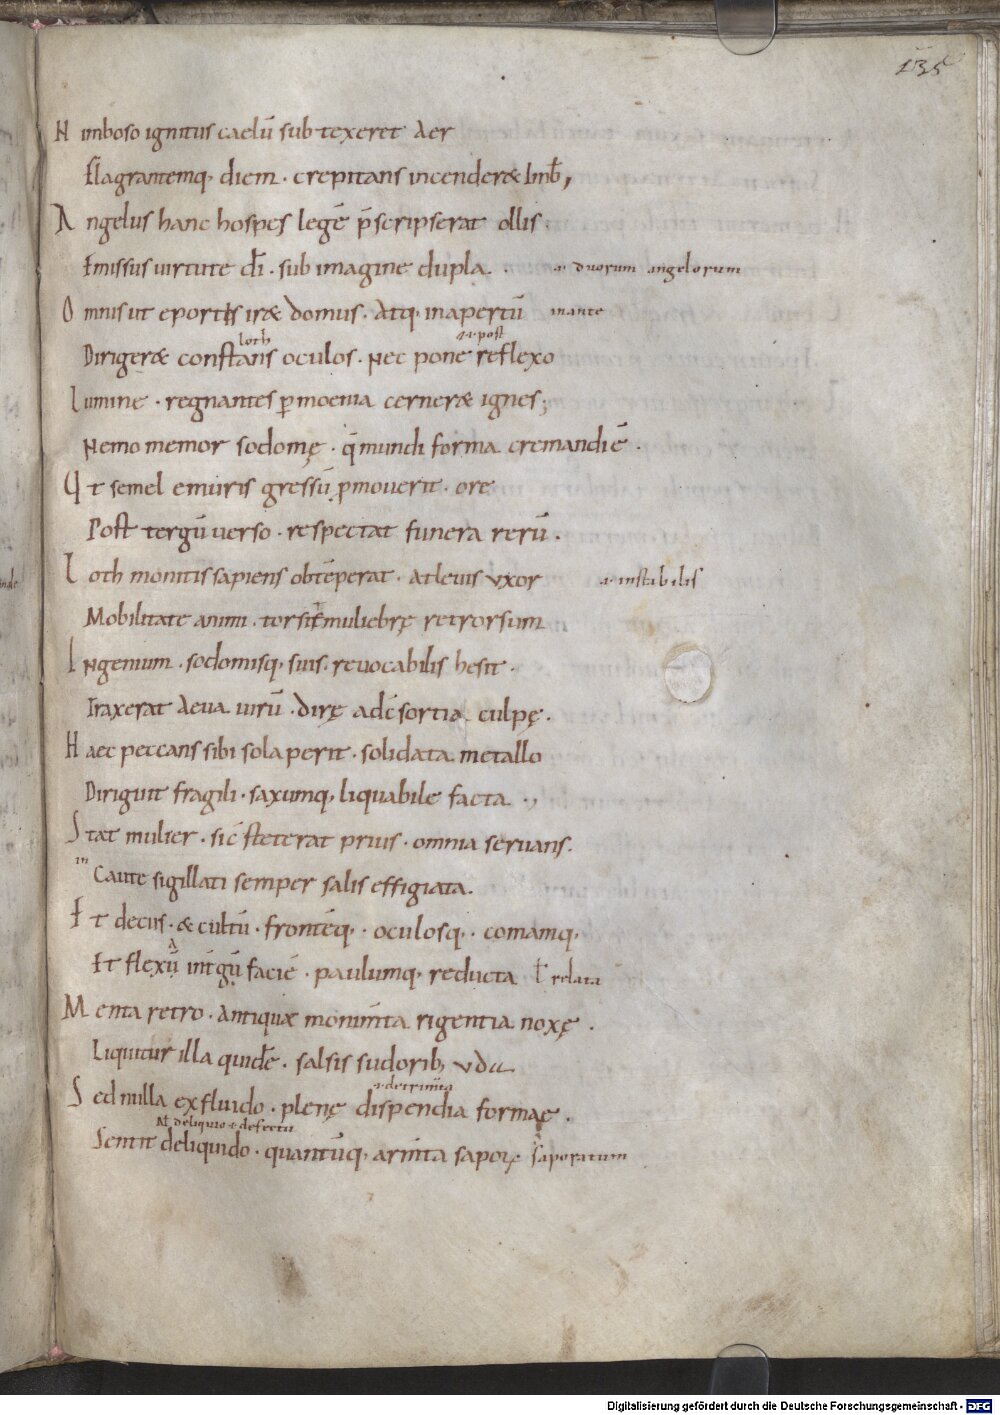 135
N imboso ignitus caelū sub texeret Aer
Flagrantemq; diem · crepitans incenderæ Imb͛;
A ngelus hanc hospes legē p̄scripserat ollis ·
Emissus uirtute dī · sub imagine dupla · .i. duorum angelorum
O mnis ut e portis iræ domus · Atq; in apertū inante
loth .i. post
Dirigeræ constans oculos · Nec pone reflexo
L umine · regnantes ꝑ moenia cerneræ ignes;
Nemo memor sodomę · q̄ mundi forma cremandi ē ·
Q t semel e muris gressū ꝓmouerit · ore
Post tergū uerso · respectat funera rerū ·
L oth monitis sapiens obtēperat · at leuis uxor .i. instabilis
Mobilitate animi · torsit muliebrę retrorsum
I ngenium · sodomisq; suis · reuocabilis hesit ·
Traxerat Aeua uirū · dirę ad c̄sortia culpę ·
H aec peccans sibi sola perit · solidata metallo
Diriguit fragili · saxumq; liquabile facta ·,
S tat mulier · sic̄ steterat prius · omnia seruans.
in
Caute sigillati semper salis effigiata.
E t decus · & cultū · frontēq; · oculosq; · comamq;
A
Et flexū int̄gū faciē · paulumq; reducta ł relata
M enta retro · Antiquæ monim̄ta rigentia noxę ·
Liquitur illa quidē · salsis sudorib; uda
.i. detrim̄ta
S ed nulla ex fluido · plenę dispendia formae ·
deliquio .i. defectu
Sentit deliquido · quantūq; arm̄ta sapore saporatum
Digitalisierung gefördert durch die Deutsche Forschungsgemeinschaft - DFG